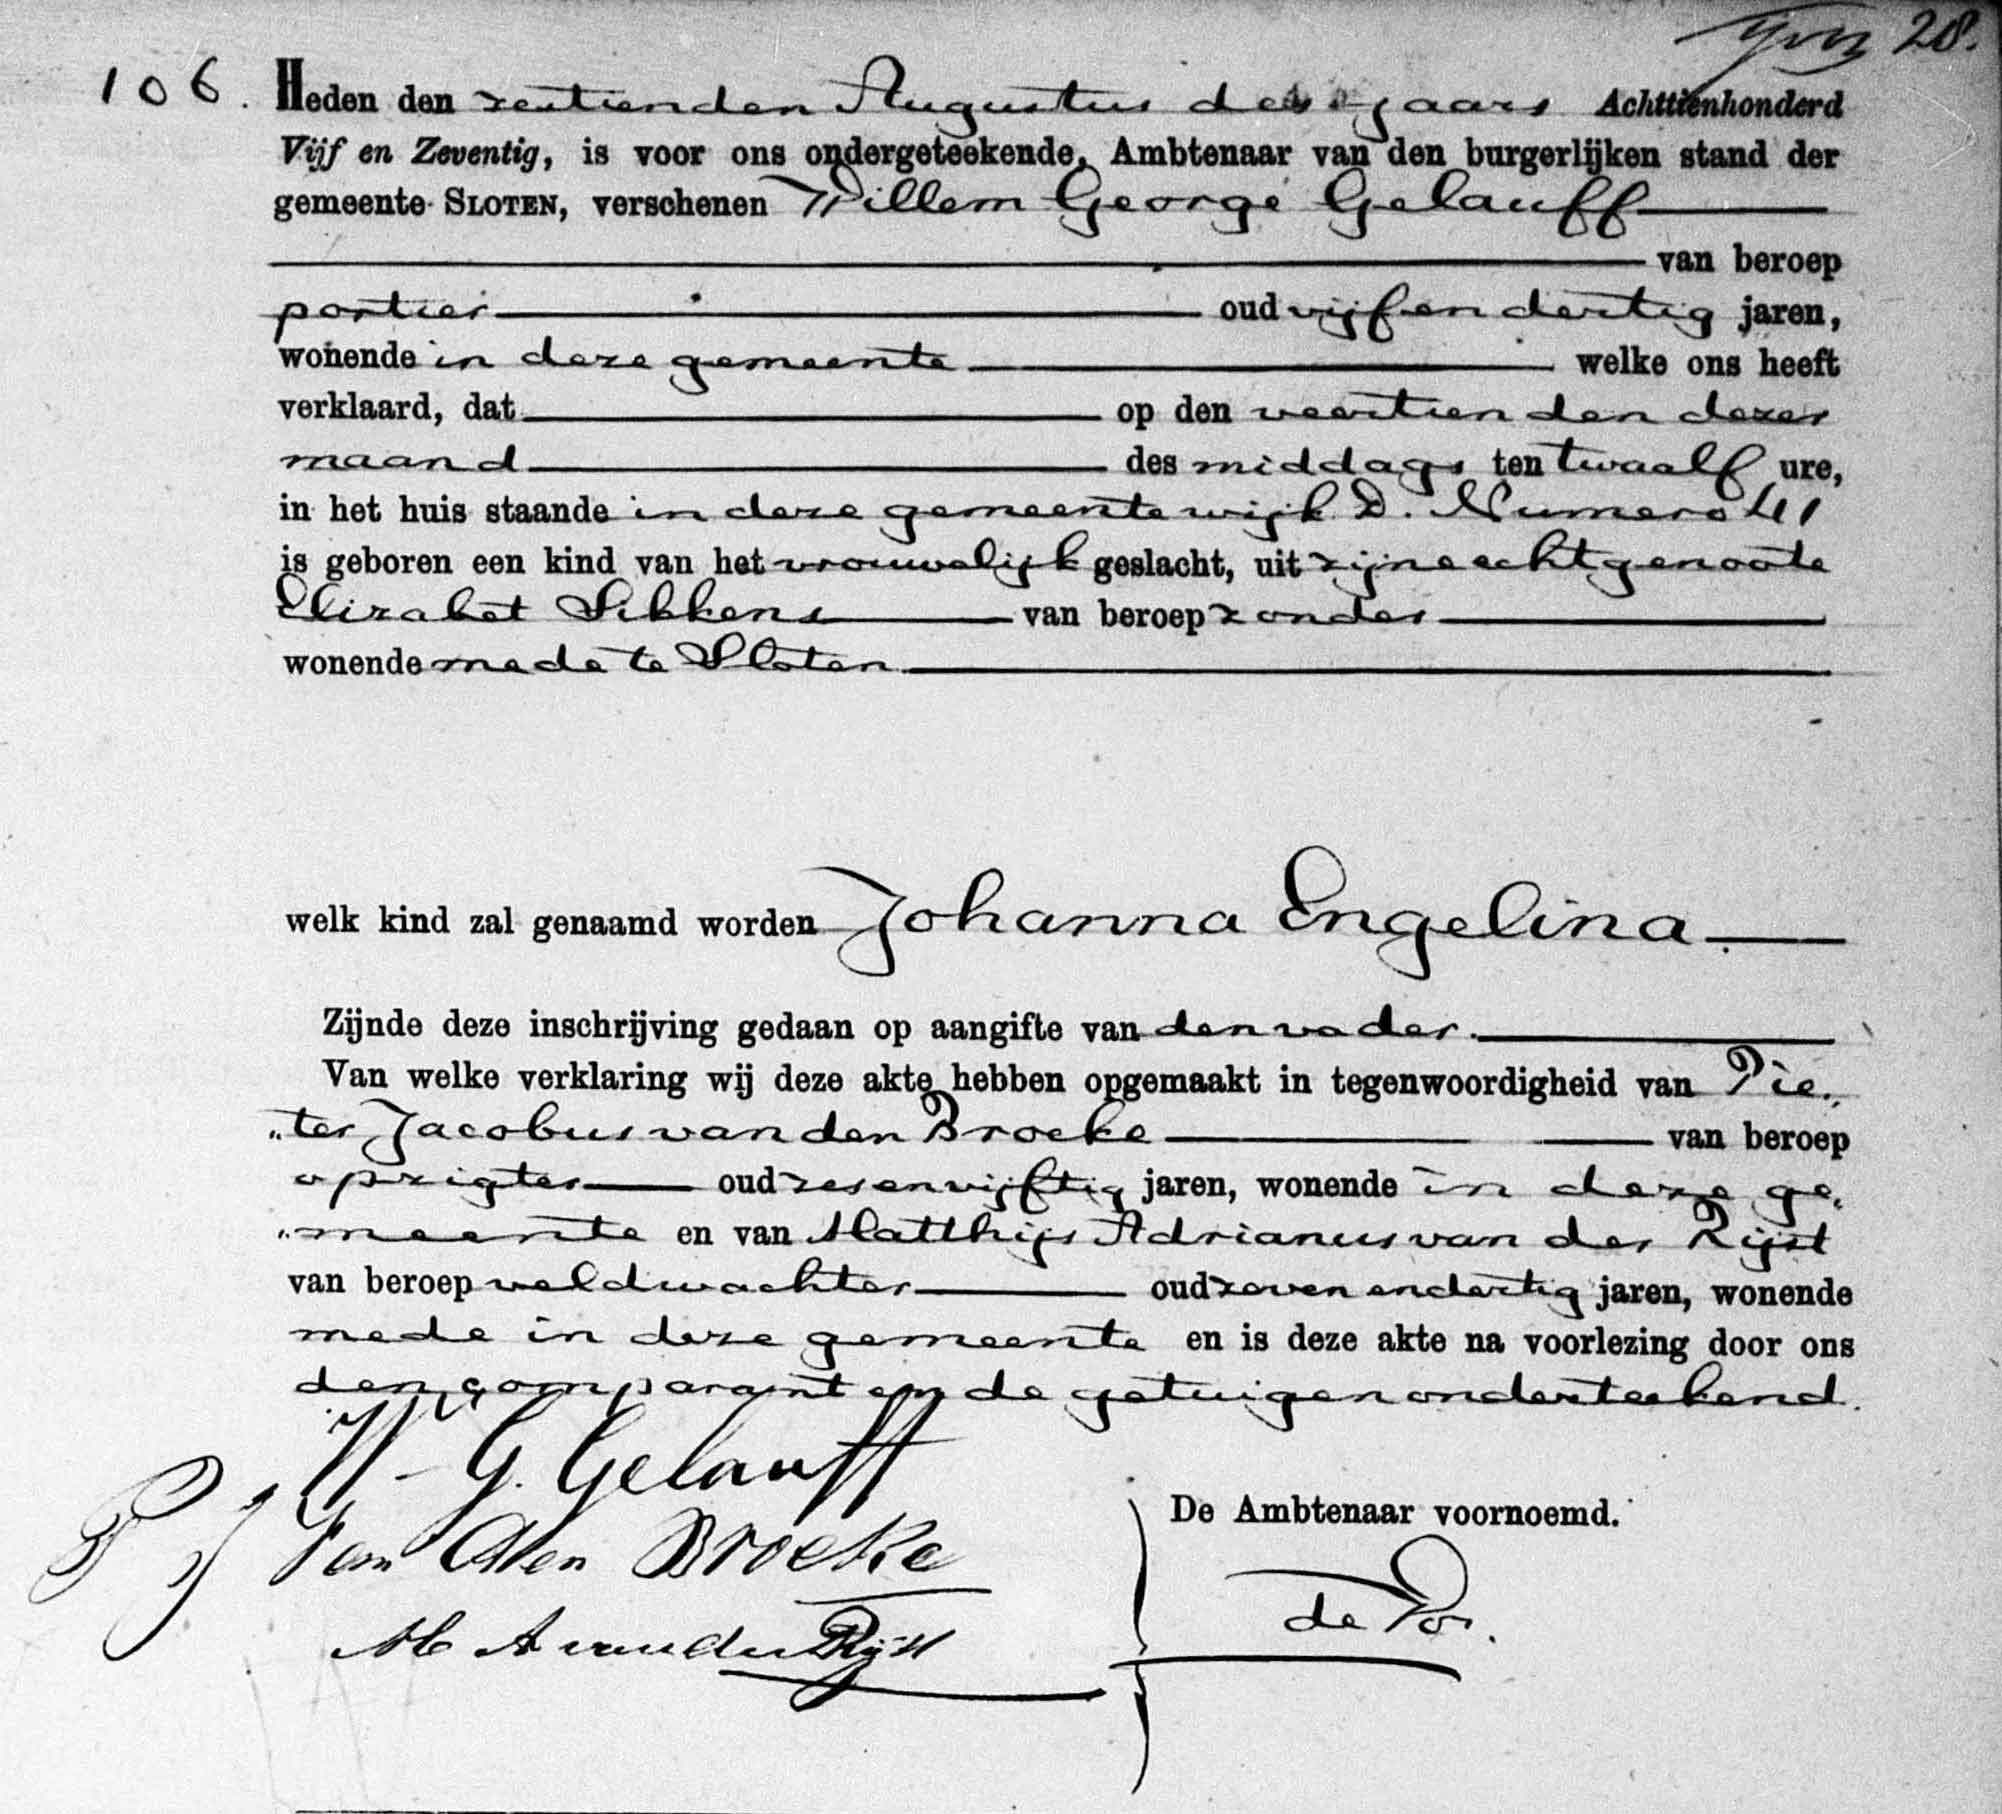 28.
106. Heden den zestienden Augustus des jaars Achttienhonderd
Vijf en Zeventig, is voor ons ondergeteekende, Ambtenaar van den burgerlijken stand der
gemeente SLOTEN, verschenen Willem George Gelauff
van beroep
portier oud vijf en dertig jaren,
wonende in deze gemeente welke ons heeft
verklaard, dat op den veertienden dezer
maand des middags ten twaalf ure,
in het huis staande in deze gemeente wijk D. Numero 41
is geboren een kind van het vrouwelijk geslacht, uit zijne echtgenoote
Elizabet Sibkens van beroep zonder
wonende mede te Sloten
welk kind zal genaamd worden Johanna Engelina
Zijnde deze inschrijving gedaan op aangifte van den vader.
Van welke verklaring wij deze akte hebben opgemaakt in tegenwoordigheid van Pie„
„ter Jacobus van den Broeke van beroep
opzigter oud zesenvijftig jaren, wonende in deze ge„
„meente en van Matthijs Adrianus van der Rijst
van beroep veldwachter oud zeven en dertig jaren, wonende
mede in deze gemeente en is deze akte na voorlezing door ons
den comparant en de getuigen onderteekend.
W. G. Gelauff
P J Van den Broeke
De Ambtenaar voornoemd.
M A van der Rijst